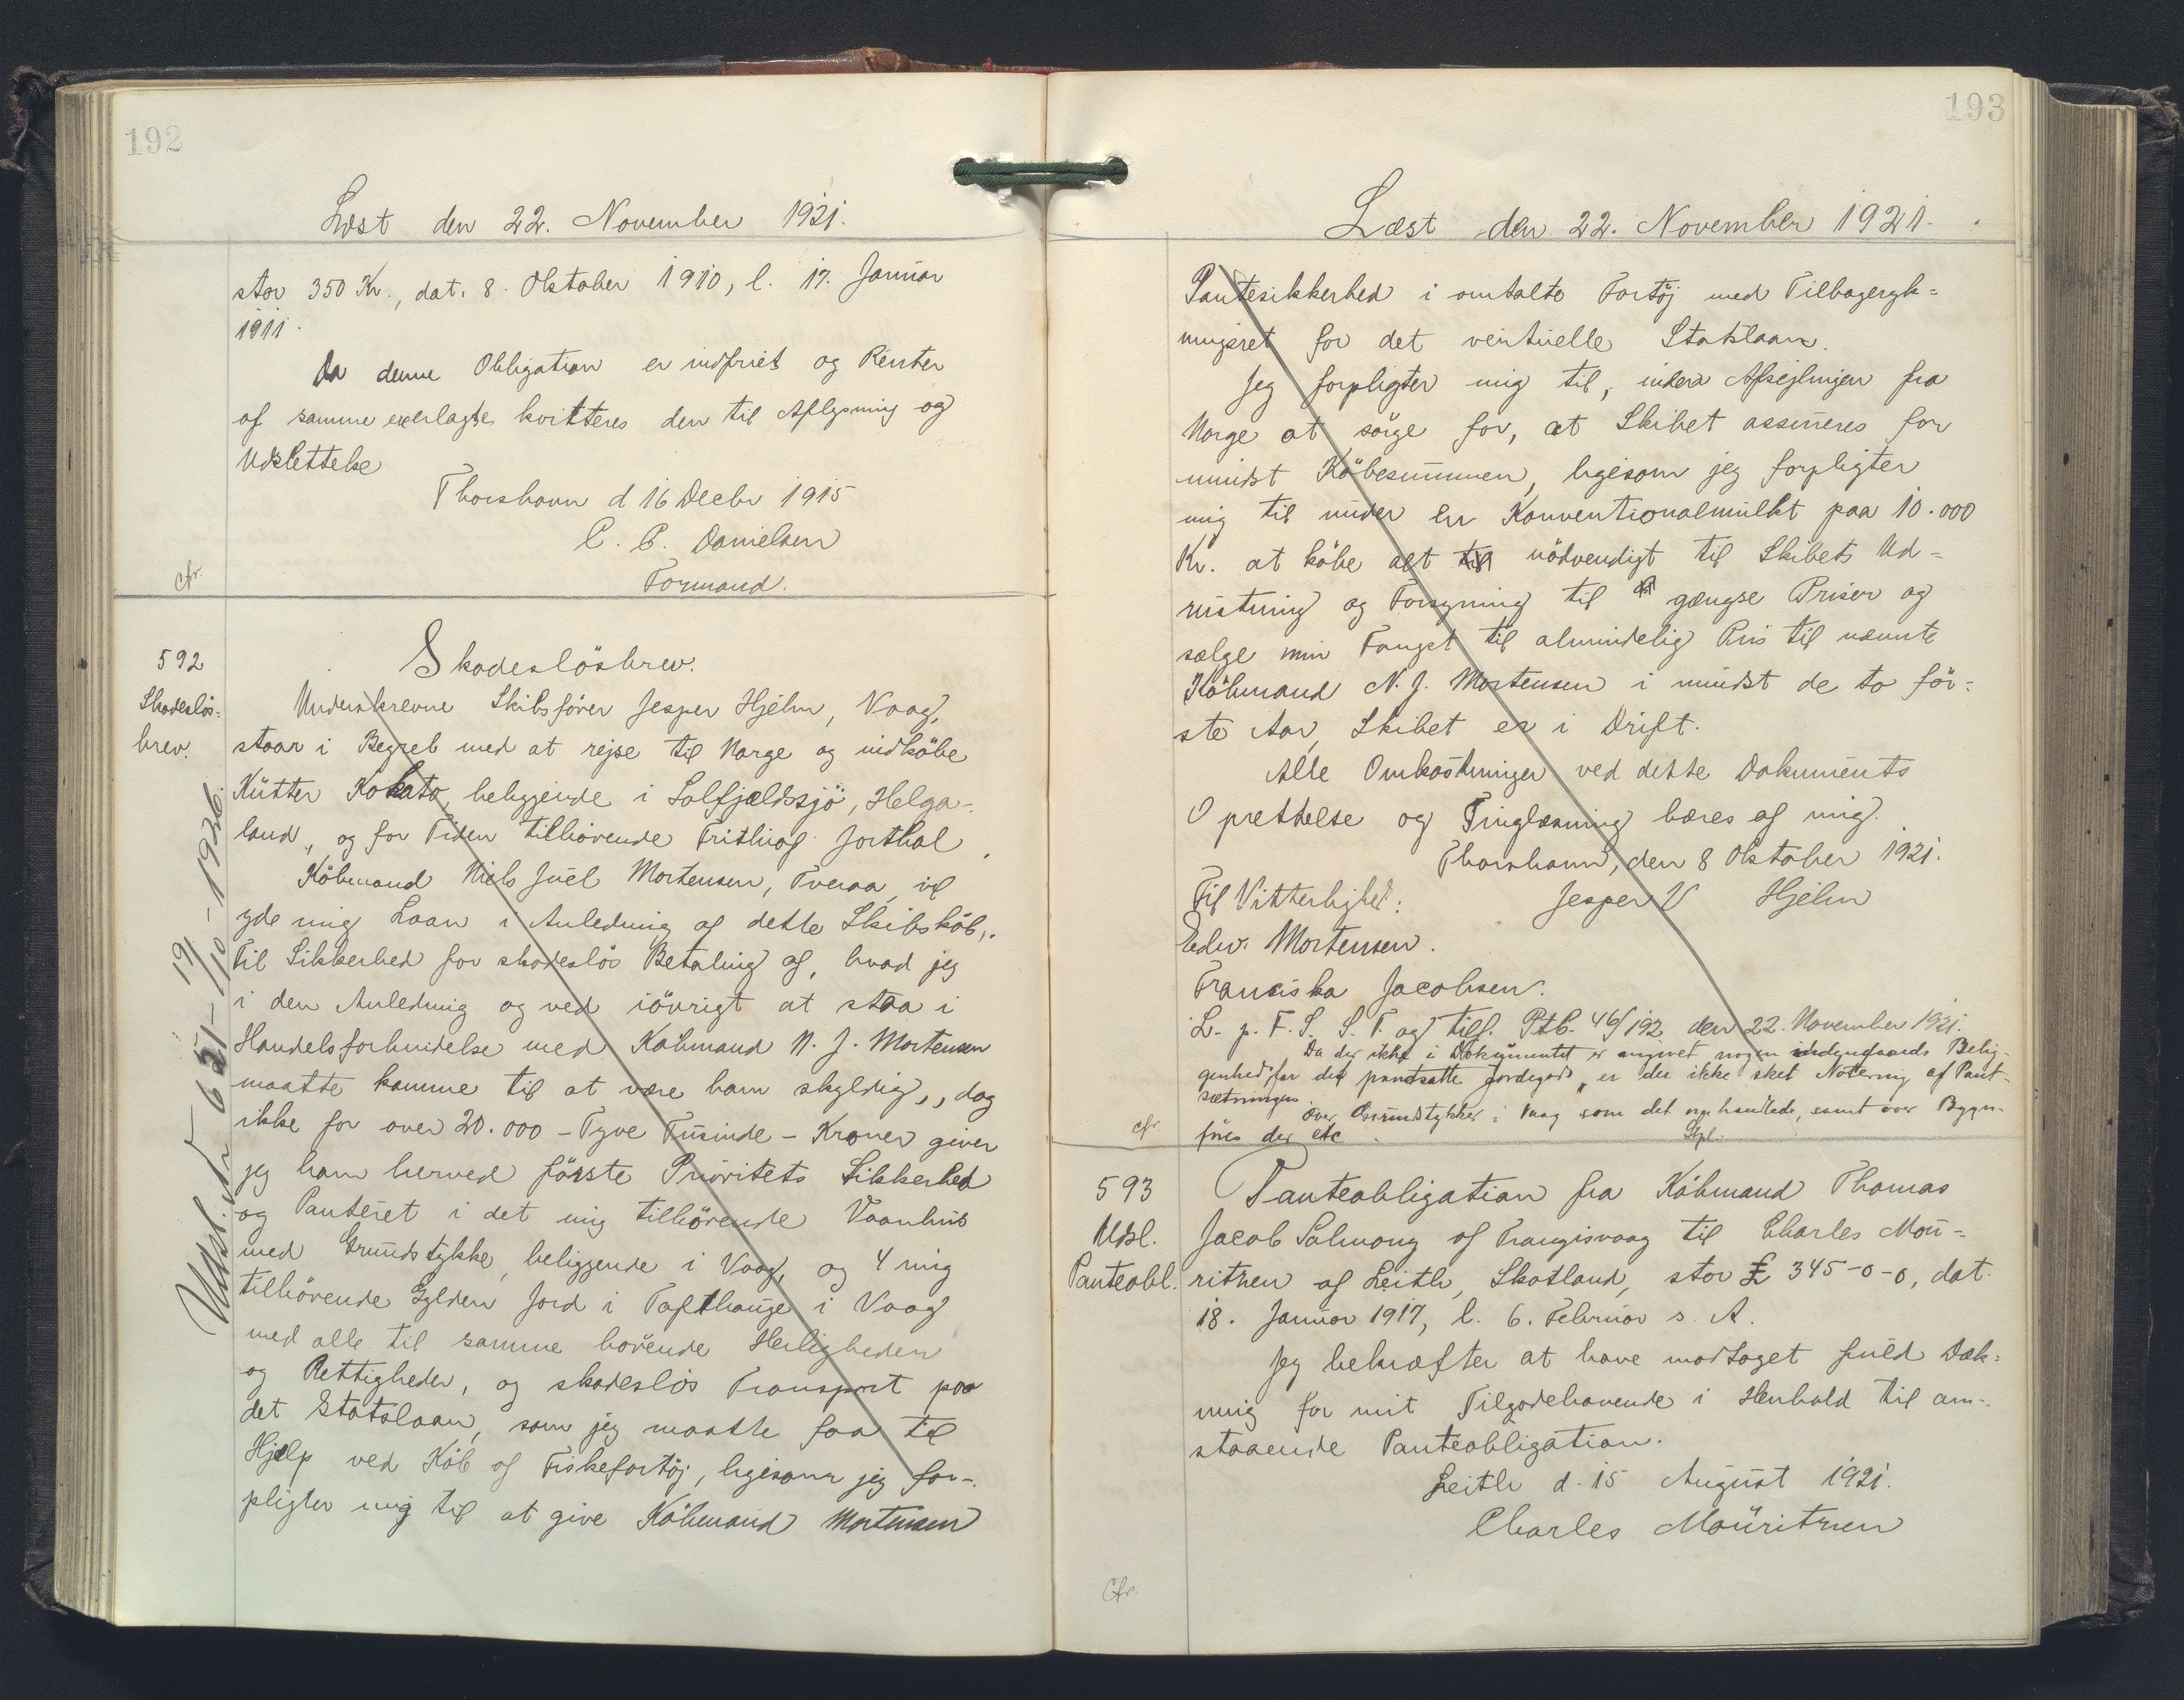 192
Læst den 22. November 1921.
stor 350 Kr., dat. 8. Oktober 1910, l. 17. Januar
1911.
Da denne Obligation er indfriet og Renter
af samme erlagte kvitteres den til Aflysning og
Udslettelse
Thorshavn d 16 Decbr 1915
C. C. Danielsen
Formand.
cfr.
592
Skadeslös=
brev.
Skadeslösbrev.
Underskrevne Skibsförer Jesper Hjelm, Vaag,
staar i Begreb med at rejse til Norge og indköbe
Kutter Kokato, beliggende i Solfjeldssjö, Helga-
land, og for Tiden tilhörende Frithiof Jorthal
Köbmand Niels Juel Mortensen, Tveraa, vil
yde mig Laan i Anledning af dette Skibsköb,.
Til Sikkerhed for skadeslös Betaling af, hvad jeg
i den Anledning og ved iövrigt at staa i
Handelsforbindelse med Köbmand N. J. Mortensen
maatte komme til at være ham skyldig,, dog
ikke for over 20.000 - Tyve Tusinde - Kroner giver
jeg ham herved förste Prioritets Sikkerhed
og Panteret i det mig tilhörende Vaanhus
med Grundstykke, beliggende i Vaag, og 4 mig
tilhörende Gylden Jord i Tofthauge i Vaag
med alle til samme hörende Herligheder
og Rettigheder, og skadeslös Transport paa
det Statslaan, som jeg maatte faa til
Hjælp ved Köb af Fiskefartöj, ligesom jeg for-
pligter mig til at give Köbmand Mortensen
Udsl. Nr 651 - 19/10 - 1926.
193
Læst den 22. November 1921.
Pantesikkerhed i omtalte Fartöj med Tilbageryk=
ningsret for det ventuelle Statslaan.
Jeg forpligter mig til, inden Afsejlingen fra
Norge at sörge for, at Skibet assureres for
mindst Köbesummen, ligesom jeg forpligter
mig til under en Konventionalmulkt paa 10.000
Kr. at köbe alt til nödvendigt til Skibets Ud-
rustning og Forsyning til gængse Priser og
sælge min Fangst til almindelig Pris til nævnte
Köbmand N. J. Mortensen i mindst de to för=
ste Aar, Skibet er i Drift.
Alle Omkostninger ved dette Dokuments
Oprettelse og Tinglæsning bæres af mig.
Thorshavn, den 8 Oktober 1921.
Til Vitterlighed: Jesper V Hjelm
Edw. Mortensen.
Franciska Jacobsen.
L. p. F. S. S. T. og tilf. PtB. 46/192 den 22. November 1921.
Da der ikke i Dokumentet er angivet nogen indengaards Belig-
genhed for det pantsatte Jordegods, er der ikke sket Notering af Pant-
sætningen
over Grundstykker i Vaag som det omhandlede, samt over Bygn-
föres der etc
Stpl.
cfr.
593
Udsl.
Panteobl.
Panteobligation fra Köbmand Thomas
Jacob Salmong af Trangisvaag til Charles Mou-
ritzen af Leith, Skotland, stor £ 345-0-0, dat.
18. Januar 1917, l. 6. Februar s. A.
Jeg bekræfter at have modtaget fuld Dæk=
ning for mit Tilgodehavende i Henhold til om-
staaende Panteobligation.
Leith d. 15 August 1921.
Charles Mouritzen
Cfr.